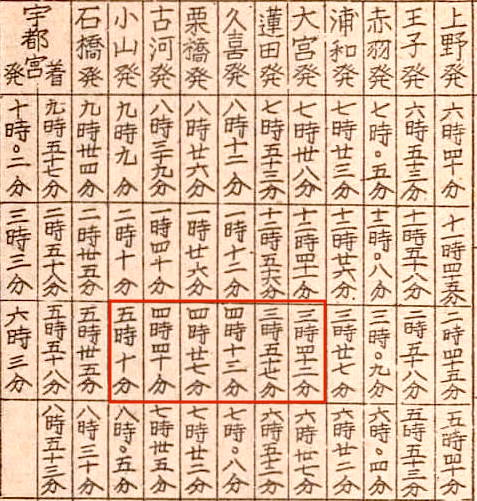 上野発
六時四十分
十一時四十五分
二時四十五分
五時四十分
王子発
六時五十三分
十一時五十八分
二時五十八分
五時五十三分
赤羽発
七時〇五分
十二時〇八分
三時〇九分
六時〇四分
浦和発
七時廿三分
十二時廿六分
三時廿七分
六時廿二分
大宮発
七時卅八分
十二時四十一分
三時四十二分
六時卅七分
蓮田発
七時五十三分
十二時五十六分
三時五十七分
六時五十二分
久喜発
八時十二分
一時十二分
四時十三分
七時〇八分
栗橋発
八時廿六分
一時廿六分
四時廿七分
七時廿二分
古河発
八時三十九分
一時四十分
四時四十分
七時卅五分
小山発
九時九分
二時十分
五時十分
八時〇五分
石橋発
九時卅四分
二時卅五分
五時卅五分
八時三十分
宇都宮
着
九時五十七分
二時五十八分
五時五十八分
八時五十三分
発
十時〇二分
三時三分
六時三分